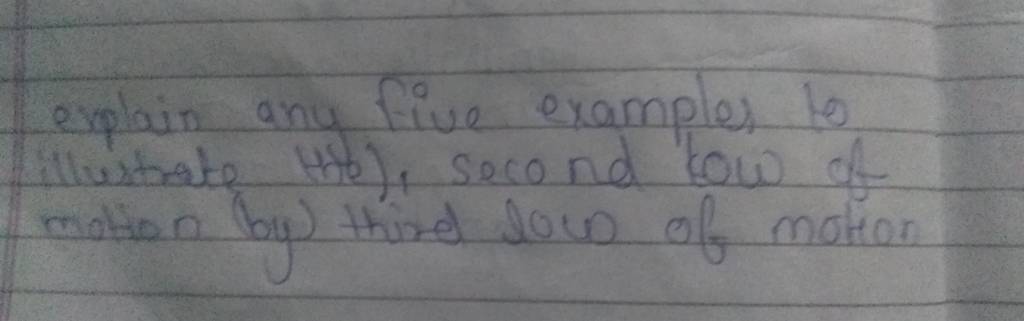 explain any five examples to
illustrate second low of
motion (by) third low of motion